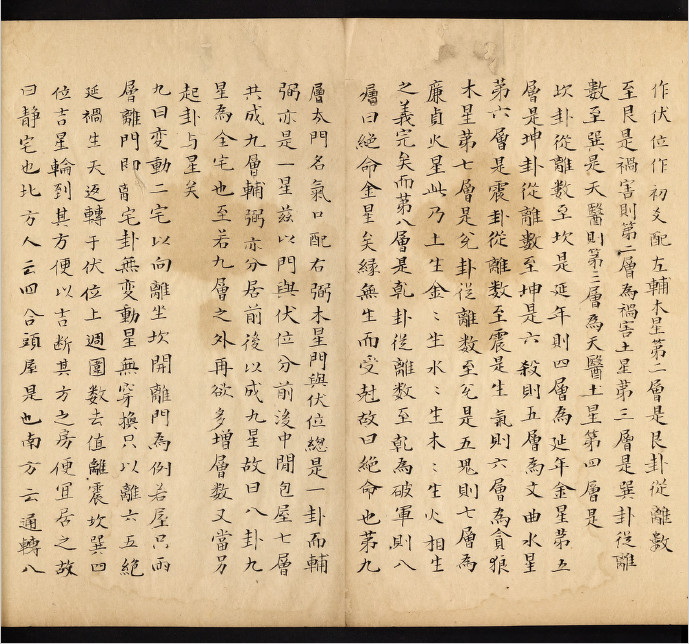 作伏位作初爻配左輔木星第二層是艮卦從離數
至艮是禍害則第二層為禍害土星第三層是巽卦從離
數至巽是天醫則第三層為天醫土星第四層是
坎卦從離數至坎是延年則四層為延年金星第五
層是坤卦從離數至坤是六殺則五層為文曲水星
第六層是震卦從離數至震是生氣則六層為貪狼
木星第七層是兌卦從離數至兌是五鬼則七層為
廉貞火星此乃土生金〻生水〻生木〻生火相生
之義完矣而第八層是乾卦從離數至乾為破軍則八
層曰絕命金星矣緣無生而受尅故曰絕命也第九
層太門名氣口配右弼木星門與伏位總是一卦而輔
弼亦是一星茲以門與伏位分前後中間包屋七層
共成九層輔弼亦分居前後以成九星故曰八卦九
星為全宅也至若九層之外再欲多增層數又當另
起卦与星矣
九曰変動二宅以向離坐坎開離門為例若屋只兩
層離門即靜宅卦無変動星無穿換只以離六五絕
延禍生天返轉于伏位上週圍數去值離震坎巽四
位吉星輪到其方便以吉断其方之房便宜居之故
曰靜宅也北方人云四合頭屋是也南方云通轉八